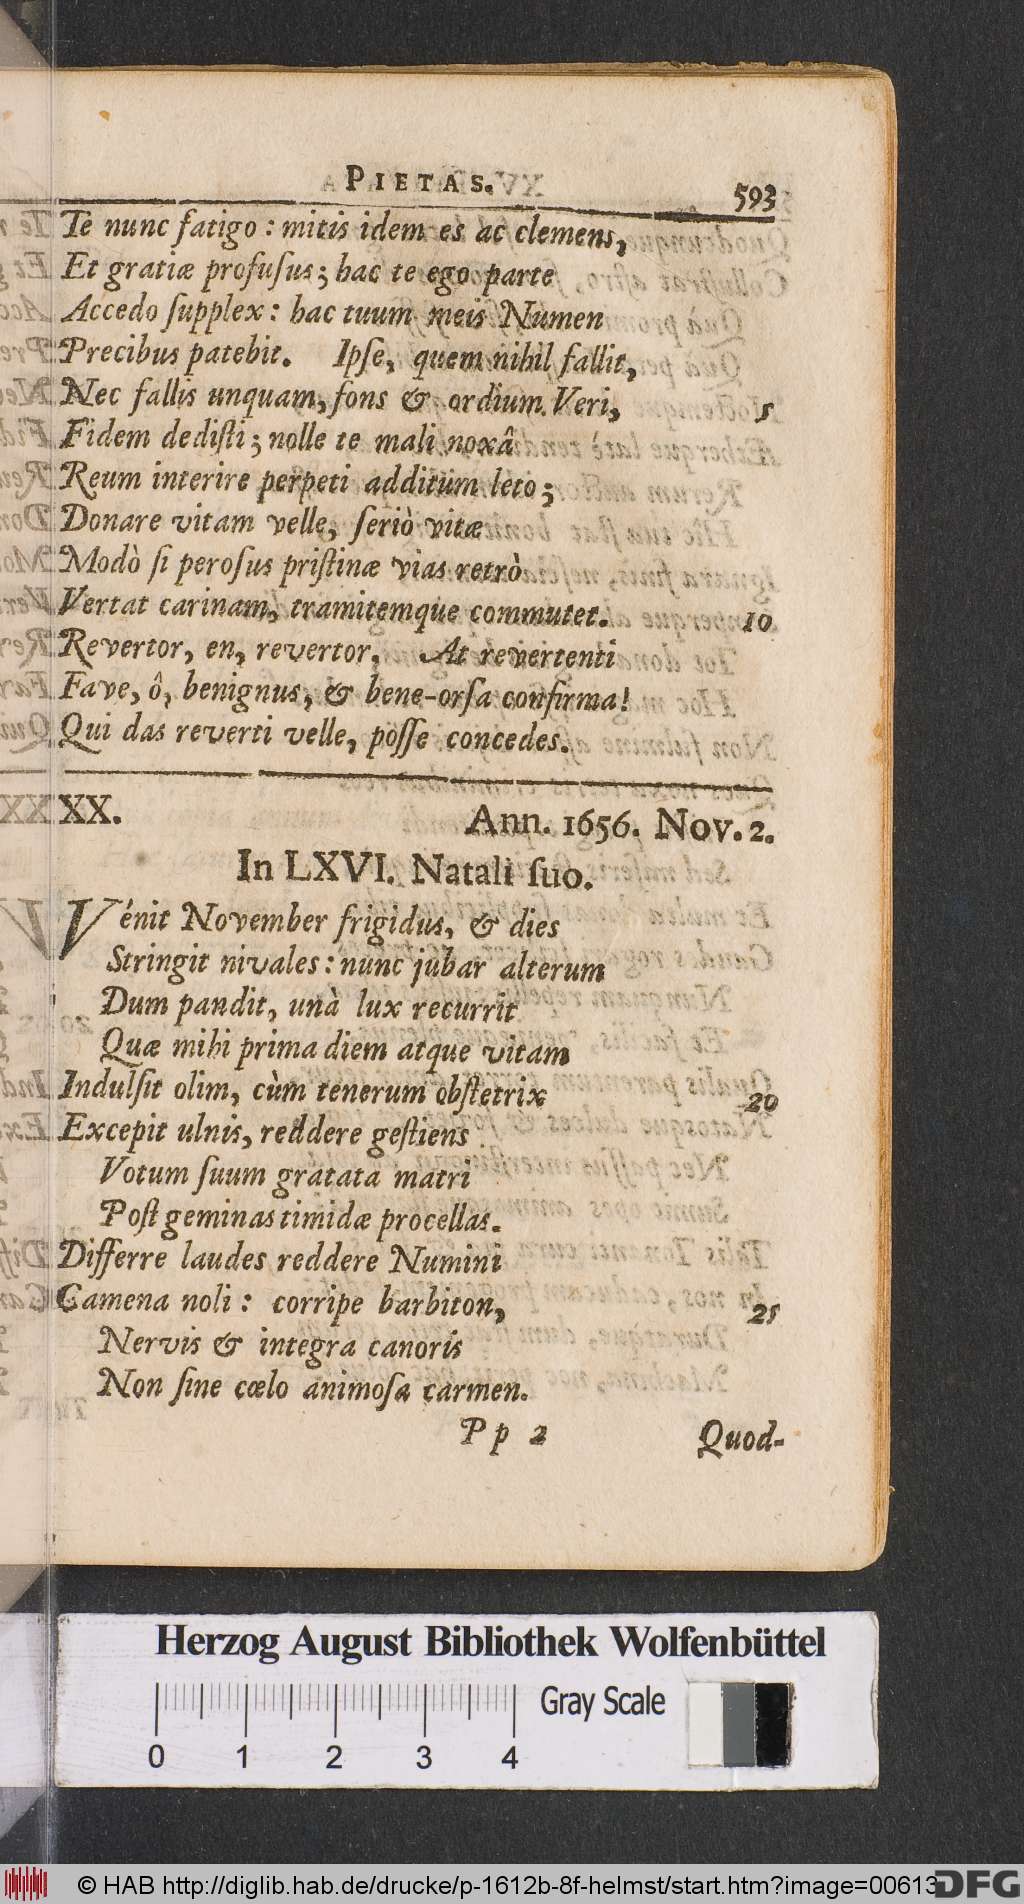 PIETAS. 593
Te nunc fatigo: mitis idem es ac clemens,
Et gratiæ profuſus; hac te ego parte
Accedo ſupplex: hac tuum meis Numen
Precibus patebit. Ipſe, quem nihil fallit,
Nec fallis unquam, fons & ordium Veri, 5
Fidem dediſti; nolle te mali noxâ
Reum interire perpeti additum leto;
Donare vitam velle, ſeriò vitæ
Modò ſi peroſus priſtinæ vias retrò
Vertat carinam, tramitemque commutet. 10
Revertor, en, revertor. At revertenti
Fave, ô, benignus, & bene-orſa confirma!
Qui das reverti velle, poſſe concedes.
XX. Ann. 1656. Nov. 2.
In LXVI. Natali ſuo.
Vénit November frigidus, & dies
Stringit nivales: nunc jubar alterum
Dum pandit, unà lux recurrit
Quæ mihi prima diem atque vitam
Indulſit olim, cùm tenerum obſtetrix 20
Excepit ulnis, reddere geſtiens
Votum ſuum gratata matri
Poſt geminas timidæ procellas.
Differre laudes reddere Numini
Camena noli: corripe barbiton, 25
Nervis & integra canoris
Non ſine cœlo animoſa carmen.
Pp 2 Quod-
Herzog August Bibliothek Wolfenbüttel
Gray Scale
0 1 2 3 4
© HAB http://diglib.hab.de/drucke/p-1612b-8f-helmst/start.htm?image=00613
DFG